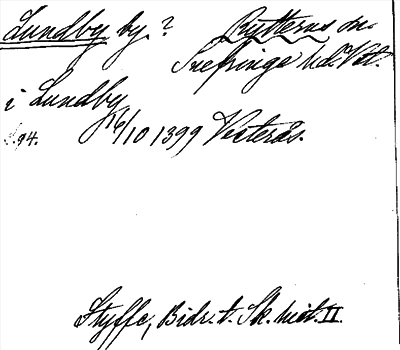 Lundby by. ? Rytterns sn.
Snefringe hd. Vstl.
i Lundby
s. 94. 16/10 1399 Vesterås.
Styffe, Bidr. t. Sk. hist. II.